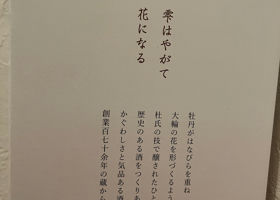 雫はやがて
花になる
牡丹がはなびらを重ね
大輪の花を形づくるよう
杜氏の技で醸されたひと
歴史のある酒をつくりあ
かぐわしさと気品ある酒
創業百七十余年の蔵から